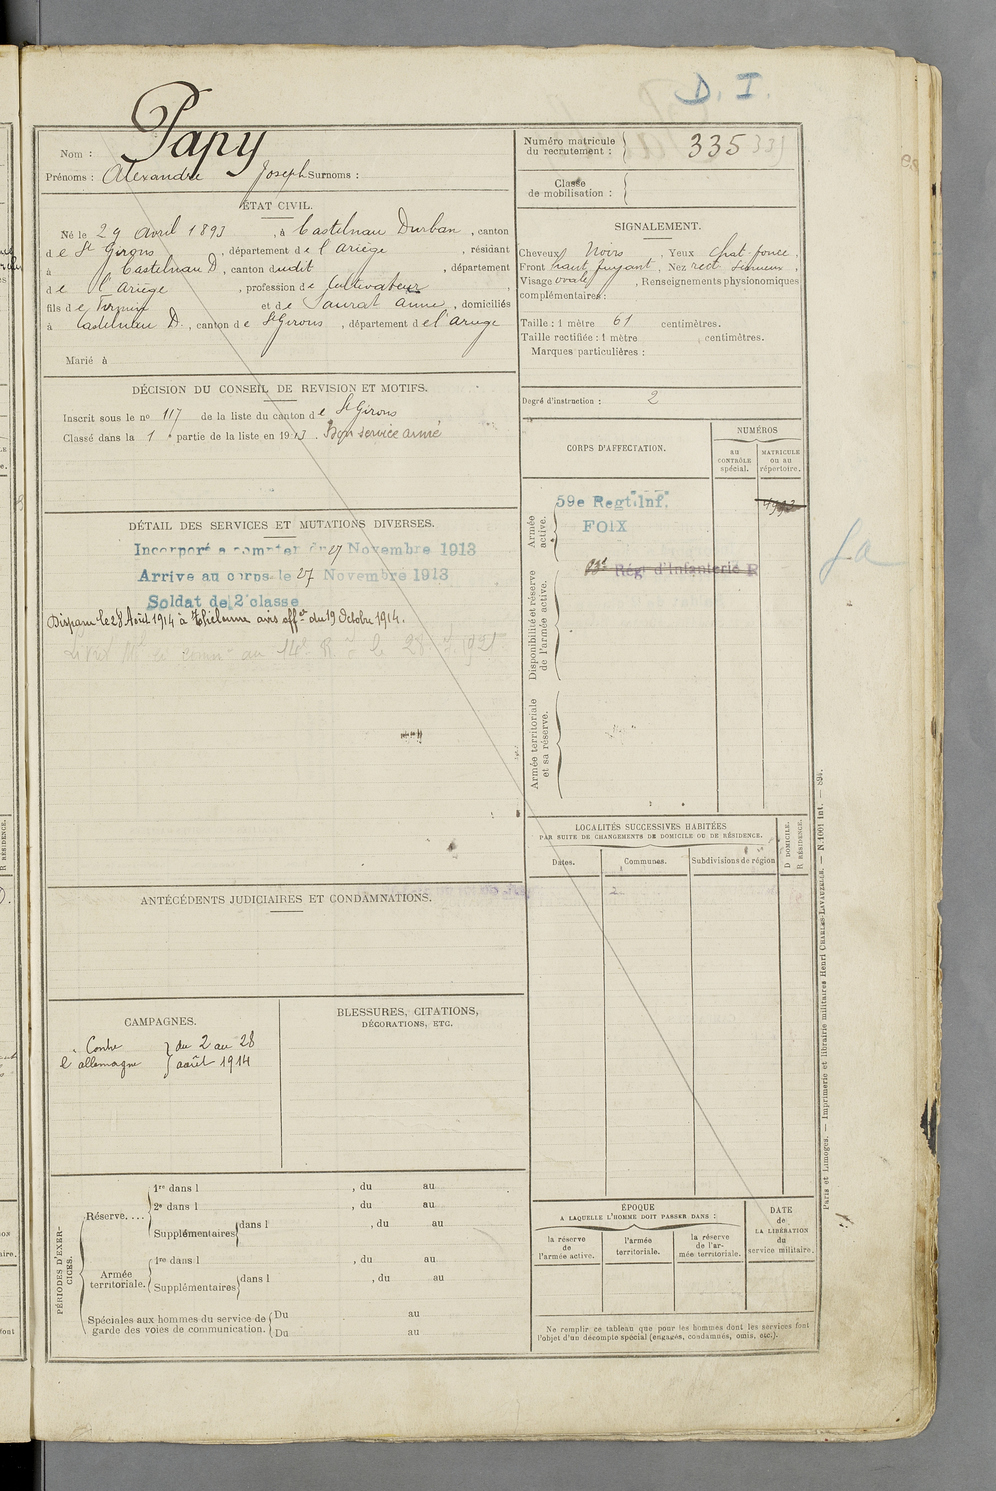 D. I.
Papy
Nom :
Prénoms : Alexandre Joseph Surnoms :
Numéro matricule du recrutement : 335
Classe de mobilisation :
ÉTAT CIVIL.
Né le 29 avril 1893, à Castelnau Durban, canton
de St Girons, département de l'Ariège, résidant
à Castelnau D, canton dudit, département
de l'Ariège, profession de Cultivateur,
fils de Firmin et de Saurat Anne, domiciliés
à Castelnau D., canton de St Girons, département de l'ariège
Marié à
SIGNALEMENT.
Cheveux Noirs, Yeux chat. foncé,
Front haut, fuyant, Nez rect. sinueux,
Visage ovale, Renseignements physionomiques
complémentaires :
Taille : 1 mètre 61 centimètres.
Taille rectifiée : 1 mètre centimètres.
Marques particulières :
Degré d'instruction : 2
DÉCISION DU CONSEIL DE REVISION ET MOTIFS.
Inscrit sous le no 117 de la liste du canton de St Girons
Classé dans la 1e partie de la liste en 1913. Bon service armé
CORPS D'AFFECTATION.
NUMÉROS
au CONTRÔLE spécial.
MATRICULE ou au répertoire.
Armée active.
59e Regt. Inf.
FOIX
Disponibilité et réserve de l'armée active.
Régt d'Infanterie R
Armée territoriale et sa réserve.
DÉTAIL DES SERVICES ET MUTATIONS DIVERSES.
Incorporé a compter du 27 Novembre 1913
Arrive au corps le 27 Novembre 1913
Soldat de 2e classe
Disparu le 28 Août 1914 à avis offel du 19 Octobre 1914.
LOCALITÉS SUCCESSIVES HABITÉES
PAR SUITE DE CHANGEMENTS DE DOMICILE OU DE RÉSIDENCE.
Dates.
Communes.
Subdivisions de région
D DOMICILE.
R RÉSIDENCE.
ANTÉCÉDENTS JUDICIAIRES ET CONDAMNATIONS.
CAMPAGNES.
Contre l'allemagne } du 2 au 28 août 1914
BLESSURES, CITATIONS,
DÉCORATIONS, ETC.
PÉRIODES D'EXERCICES.
Réserve....
1re dans l , du au
2e dans l , du au
Supplémentaires dans l , du au
Armée territoriale.
1re dans l , du au
Supplémentaires dans l , du au
Spéciales aux hommes du service de garde des voies de communication.
Du au
Du au
ÉPOQUE
A LAQUELLE L'HOMME DOIT PASSER DANS :
la réserve de l'armée active.
l'armée territoriale.
la réserve de l'armée territoriale.
DATE de LA LIBÉRATION du service militaire.
Ne remplir ce tableau que pour les hommes dont les services font
l'objet d'un décompte spécial (engagés, condamnés, omis, etc.).
Paris et Limoges. — Imprimerie et librairie militaires Henri CHARLES-LAVAUZELLE. — N. 1001 int. — 894.